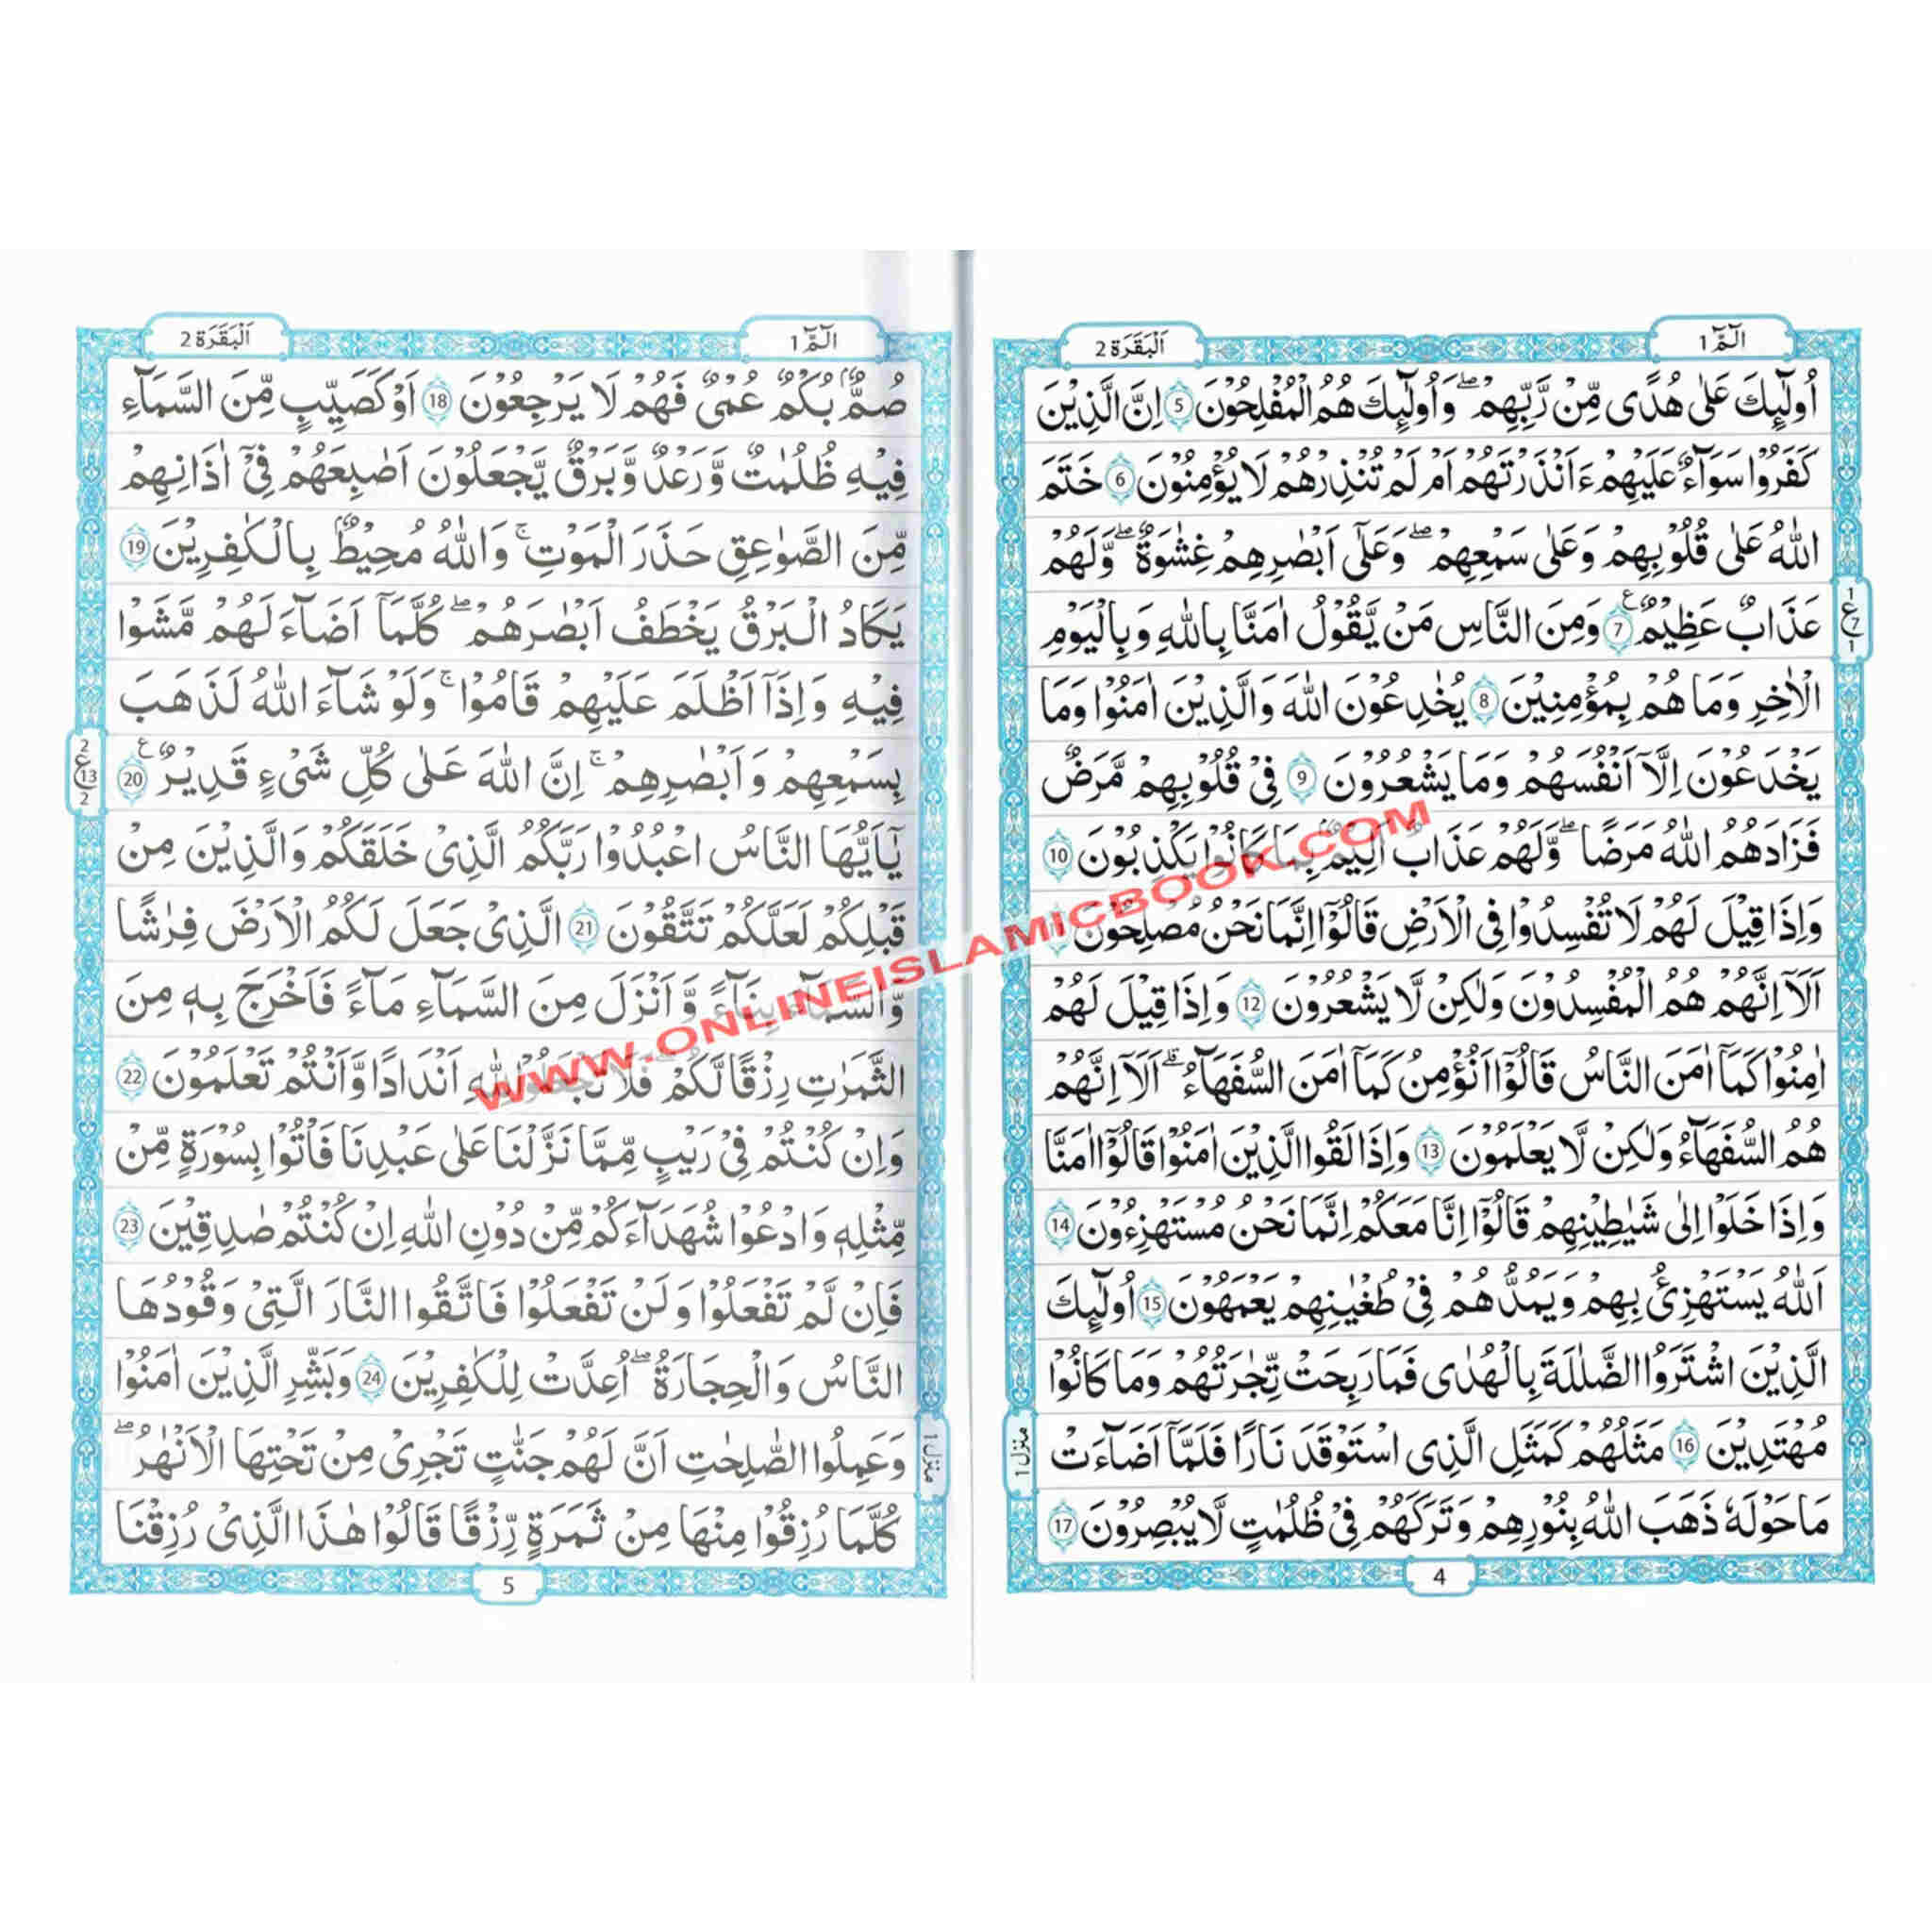 الٓمّٓ 1
اَلْبَقَرَة 2
اُولٰٓئِكَ عَلٰى هُدًى مِّنْ رَّبِّهِمْ ۖ وَاُولٰٓئِكَ هُمُ الْمُفْلِحُوْنَ 5 اِنَّ الَّذِيْنَ
كَفَرُوْا سَوَآءٌ عَلَيْهِمْ ءَاَنْذَرْتَهُمْ اَمْ لَمْ تُنْذِرْهُمْ لَا يُؤْمِنُوْنَ 6 خَتَمَ
اللّٰهُ عَلٰى قُلُوْبِهِمْ وَعَلٰى سَمْعِهِمْ ۖ وَعَلٰٓى اَبْصٰرِهِمْ غِشٰوَةٌ ۖ وَّلَهُمْ
عَذَابٌ عَظِيْمٌ 7 ع وَمِنَ النَّاسِ مَنْ يَّقُوْلُ اٰمَنَّا بِاللّٰهِ وَبِالْيَوْمِ
1 ع 7 1
الْاٰخِرِ وَمَا هُمْ بِمُؤْمِنِيْنَ 8 يُخٰدِعُوْنَ اللّٰهَ وَالَّذِيْنَ اٰمَنُوْا وَمَا
يَخْدَعُوْنَ اِلَّآ اَنْفُسَهُمْ وَمَا يَشْعُرُوْنَ 9 فِيْ قُلُوْبِهِمْ مَّرَضٌ
فَزَادَهُمُ اللّٰهُ مَرَضًا ۖ وَّلَهُمْ عَذَابٌ اَلِيْمٌ بِمَا كَانُوْا يَكْذِبُوْنَ 10
وَاِذَا قِيْلَ لَهُمْ لَا تُفْسِدُوْا فِى الْاَرْضِ قَالُوْٓا اِنَّمَا نَحْنُ مُصْلِحُوْنَ
اَلَآ اِنَّهُمْ هُمُ الْمُفْسِدُوْنَ وَلٰكِنْ لَّا يَشْعُرُوْنَ 12 وَاِذَا قِيْلَ لَهُمْ
اٰمِنُوْا كَمَآ اٰمَنَ النَّاسُ قَالُوْٓا اَنُؤْمِنُ كَمَآ اٰمَنَ السُّفَهَآءُ ۗ اَلَآ اِنَّهُمْ
هُمُ السُّفَهَآءُ وَلٰكِنْ لَّا يَعْلَمُوْنَ 13 وَاِذَا لَقُوا الَّذِيْنَ اٰمَنُوْا قَالُوْٓا اٰمَنَّا
وَاِذَا خَلَوْا اِلٰى شَيٰطِيْنِهِمْ قَالُوْٓا اِنَّا مَعَكُمْ اِنَّمَا نَحْنُ مُسْتَهْزِءُوْنَ 14
اَللّٰهُ يَسْتَهْزِئُ بِهِمْ وَيَمُدُّهُمْ فِيْ طُغْيٰنِهِمْ يَعْمَهُوْنَ 15 اُولٰٓئِكَ
الَّذِيْنَ اشْتَرَوُا الضَّلٰلَةَ بِالْهُدٰى فَمَا رَبِحَتْ تِّجٰرَتُهُمْ وَمَا كَانُوْا
مُهْتَدِيْنَ 16 مَثَلُهُمْ كَمَثَلِ الَّذِى اسْتَوْقَدَ نَارًا فَلَمَّآ اَضَآءَتْ
منزل 1
مَا حَوْلَهٗ ذَهَبَ اللّٰهُ بِنُوْرِهِمْ وَتَرَكَهُمْ فِيْ ظُلُمٰتٍ لَّا يُبْصِرُوْنَ 17
4
الٓمّٓ 1
اَلْبَقَرَة 2
صُمٌّۢ بُكْمٌ عُمْيٌ فَهُمْ لَا يَرْجِعُوْنَ 18 اَوْ كَصَيِّبٍ مِّنَ السَّمَآءِ
فِيْهِ ظُلُمٰتٌ وَّرَعْدٌ وَّبَرْقٌ يَّجْعَلُوْنَ اَصٰبِعَهُمْ فِيْٓ اٰذَانِهِمْ
مِّنَ الصَّوٰعِقِ حَذَرَ الْمَوْتِ ۚ وَاللّٰهُ مُحِيْطٌۢ بِالْكٰفِرِيْنَ 19
يَكَادُ الْبَرْقُ يَخْطَفُ اَبْصٰرَهُمْ ۖ كُلَّمَآ اَضَآءَ لَهُمْ مَّشَوْا
فِيْهِ وَاِذَآ اَظْلَمَ عَلَيْهِمْ قَامُوْا ۚ وَلَوْ شَآءَ اللّٰهُ لَذَهَبَ
بِسَمْعِهِمْ وَاَبْصٰرِهِمْ ۚ اِنَّ اللّٰهَ عَلٰى كُلِّ شَيْءٍ قَدِيْرٌ 20 ع
2 ع 13 2
يٰٓاَيُّهَا النَّاسُ اعْبُدُوْا رَبَّكُمُ الَّذِيْ خَلَقَكُمْ وَالَّذِيْنَ مِنْ
قَبْلِكُمْ لَعَلَّكُمْ تَتَّقُوْنَ 21 الَّذِيْ جَعَلَ لَكُمُ الْاَرْضَ فِرٰشًا
وَّالسَّمَآءَ بِنَآءً وَّاَنْزَلَ مِنَ السَّمَآءِ مَآءً فَاَخْرَجَ بِهٖ مِنَ
الثَّمَرٰتِ رِزْقًا لَّكُمْ ۖ فَلَا تَجْعَلُوْا لِلّٰهِ اَنْدَادًا وَّاَنْتُمْ تَعْلَمُوْنَ 22
وَاِنْ كُنْتُمْ فِيْ رَيْبٍ مِّمَّا نَزَّلْنَا عَلٰى عَبْدِنَا فَاْتُوْا بِسُوْرَةٍ مِّنْ
مِّثْلِهٖ وَادْعُوْا شُهَدَآءَكُمْ مِّنْ دُوْنِ اللّٰهِ اِنْ كُنْتُمْ صٰدِقِيْنَ 23
فَاِنْ لَّمْ تَفْعَلُوْا وَلَنْ تَفْعَلُوْا فَاتَّقُوا النَّارَ الَّتِيْ وَقُوْدُهَا
النَّاسُ وَالْحِجَارَةُ ۖ اُعِدَّتْ لِلْكٰفِرِيْنَ 24 وَبَشِّرِ الَّذِيْنَ اٰمَنُوْا
وَعَمِلُوا الصّٰلِحٰتِ اَنَّ لَهُمْ جَنّٰتٍ تَجْرِيْ مِنْ تَحْتِهَا الْاَنْهٰرُ ۖ
منزل 1
كُلَّمَا رُزِقُوْا مِنْهَا مِنْ ثَمَرَةٍ رِّزْقًا قَالُوْا هٰذَا الَّذِيْ رُزِقْنَا
5
WWW.ONLINEISLAMICBOOK.COM